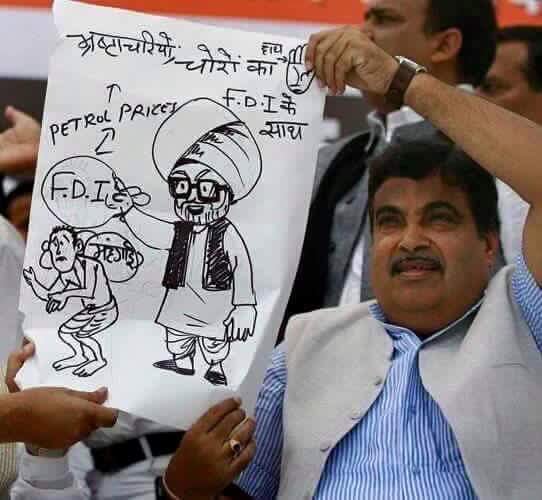 भ्रष्टाचारियों, चोरों का हाथ
F.D.I के
साथ
PETROL PRICES
F.D.I
महंगाई